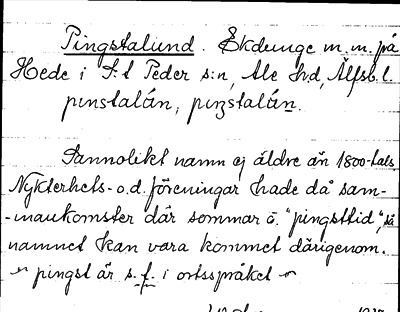 Pingstalund. Ekdunge m.m. på
Hede i S:t Peder s:n, Ale hd, Älfsb. l.
pinstalún, pingstalún.
Sannolikt namn ej äldre än 1800-tals
Nykterhets- o.d. föreningar hade då sam-
-mankomster där sommar o. "pingsttid", så
namnet kan vara kommet därigenom.
pingst är s. f. i ortsspråket